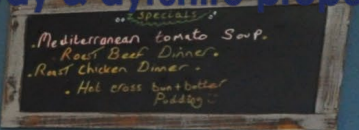 Specials
• Mediterranean tomato Soup.
Roast Beef Dinner.
• Roast Chicken Dinner.
• Hot cross bun + butter
Pudding